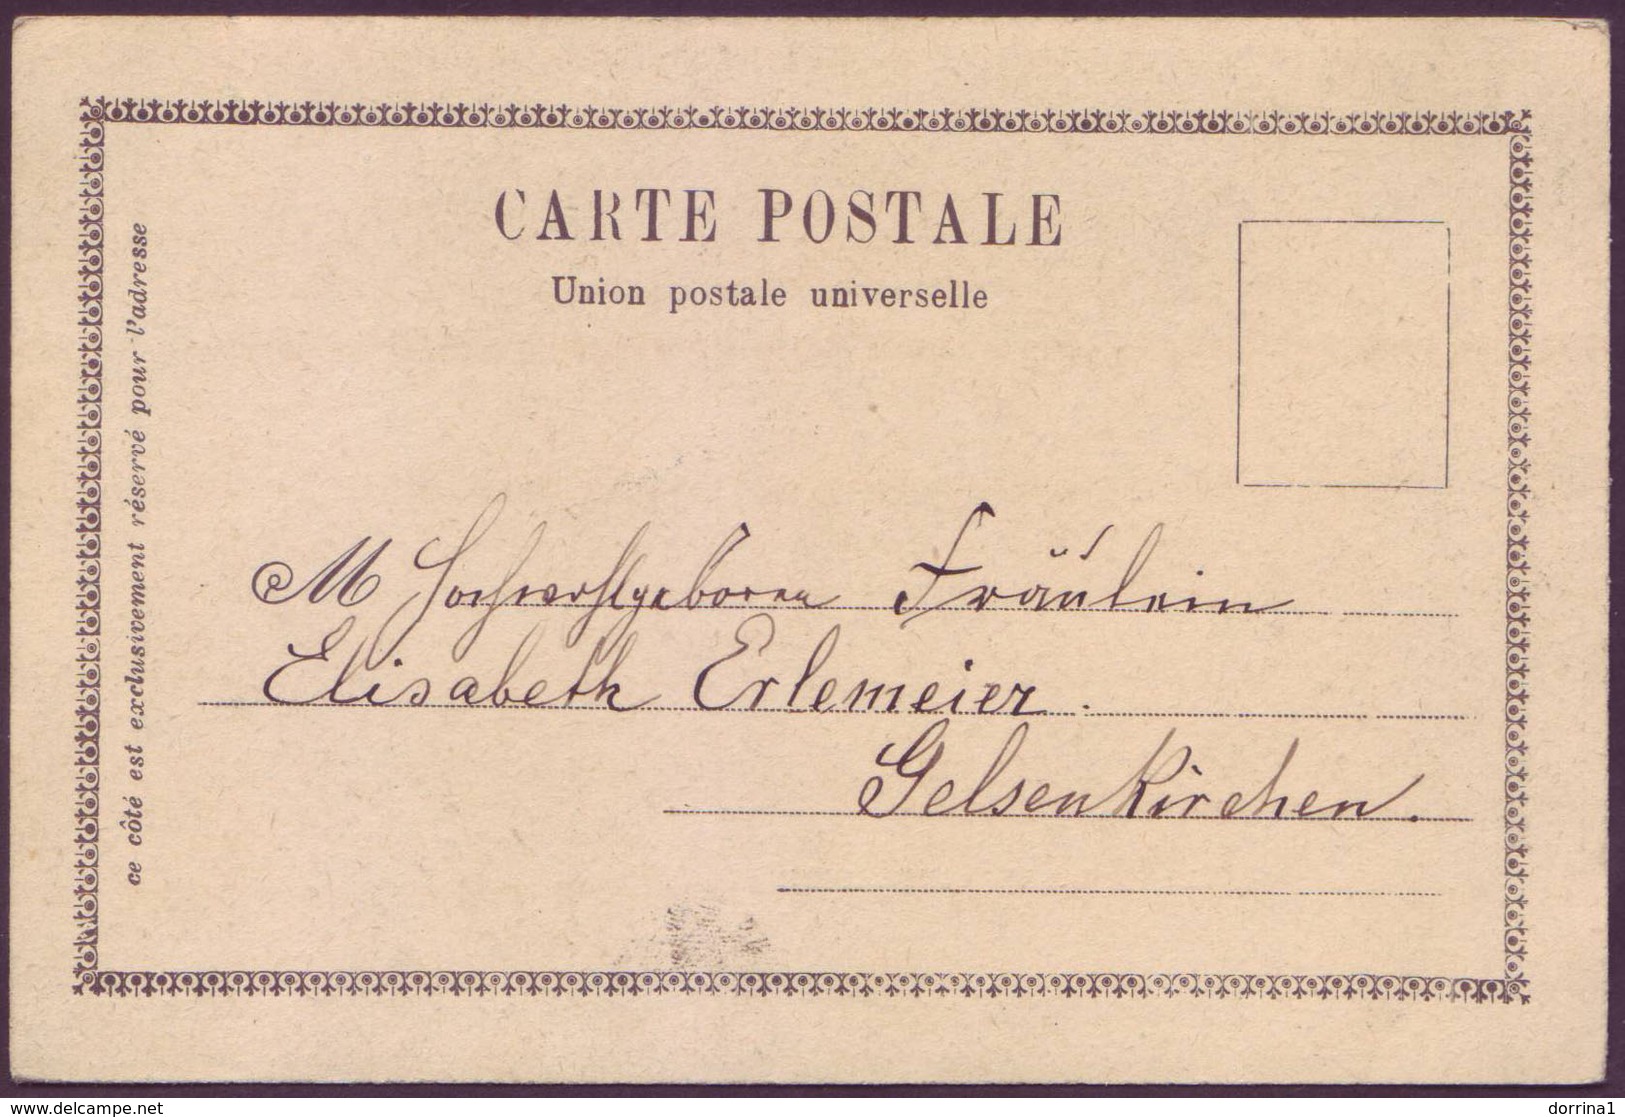 CARTE POSTALE
Union postale universelle
ce côté est exclusivement réservé pour l'adresse
M Hochwohlgeboren Fräulein
Elisabeth Erlemeier.
Gelsenkirchen.
delcampe.net
dorrina1